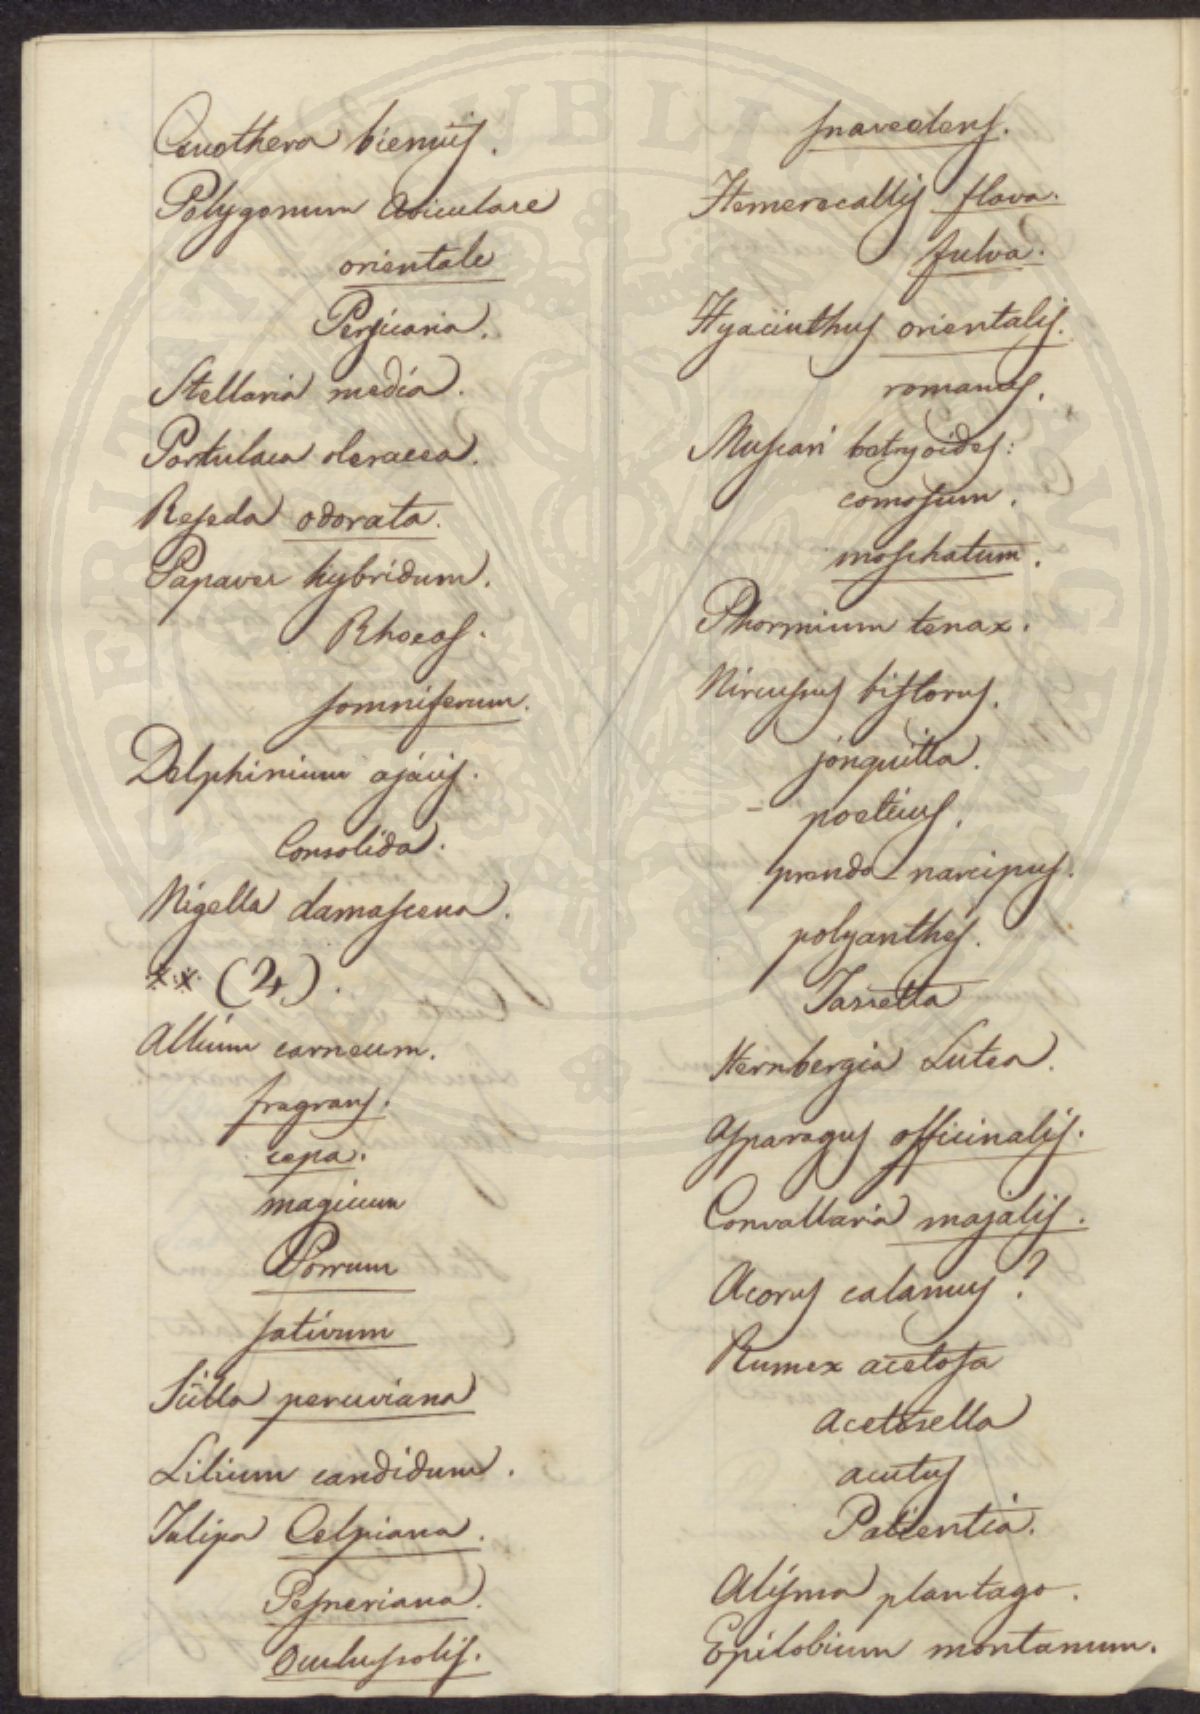 Oenothera biennis.
Polygonum Aviculare
orientale
Persicaria.
Stellaria media.
Portulaca oleracea.
Reseda odorata.
Papaver hybridum.
Rhoeas.
somniferum.
Delphinium ajacis.
Consolida.
Nigella damascena.
** (24).
Allium carneum.
fragrans.
cepa.
magicum
Porrum
sativum
Scilla peruviana
Lilium candidum.
Tulipa Celsiana.
Gesneriana.
Oculus solis.
suaveolens.
Hemerocallis flava.
fulva.
Hyacinthus orientalis.
romanus.
Muscari botryoides:
comosum.
moschatum.
Phormium tenax.
biflorus.
jonquilla.
- poeticus.
pseudo-narcissus.
polyanthos.
Tazetta
Sternbergia Lutea.
Asparagus officinalis.
Convallaria majalis.
Acorus calamus?
Rumex acetosa
Acetosella
acutus
Patientia.
Alisma plantago.
Epilobium montanum.